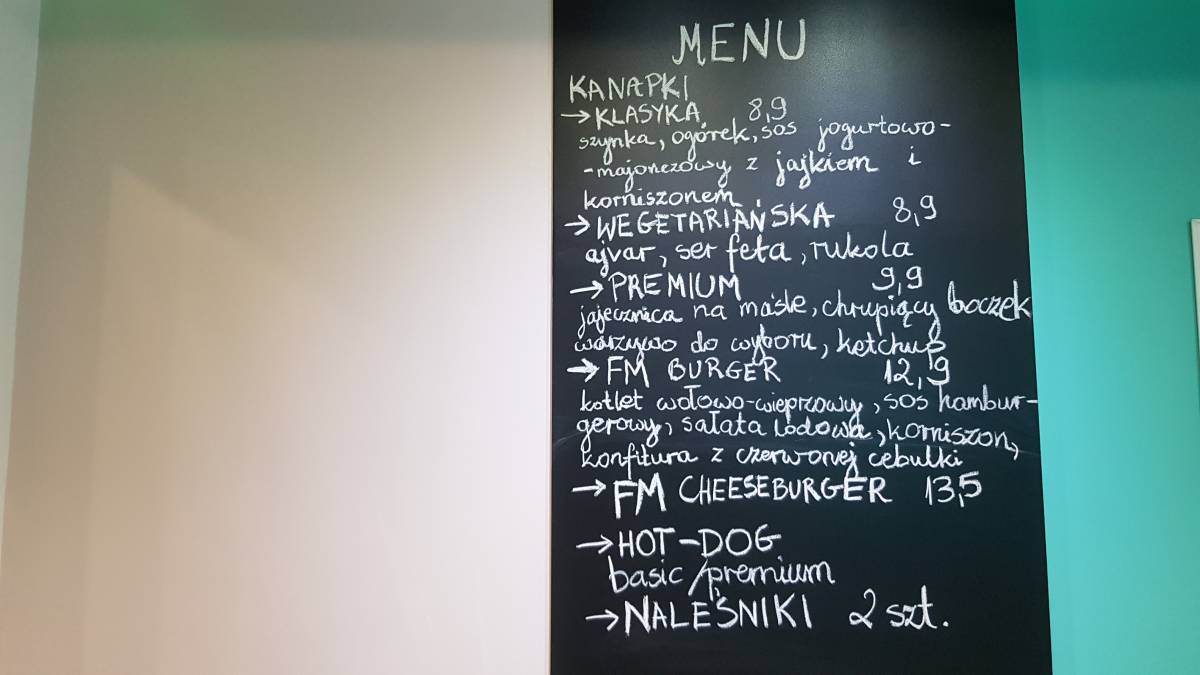 MENU
KANAPKI
→ KLASYKA 8,9
szynka, ogórek, sos jogurtowo-
-majonezowy z jajkiem i
korniszonem
→ WEGETARIAŃSKA 8,9
ajvar, ser feta, rukola
→ PREMIUM 9,9
jajecznica na maśle, chrupiący boczek
warzywo do wyboru, ketchup
→ FM BURGER 12,9
kotlet wołowo-wieprzowy, sos hambur-
gerowy, sałata lodowa, korniszon,
konfitura z czerwonej cebulki
→ FM CHEESEBURGER 13,5
→ HOT-DOG
basic/premium
→ NALEŚNIKI 2 szt.